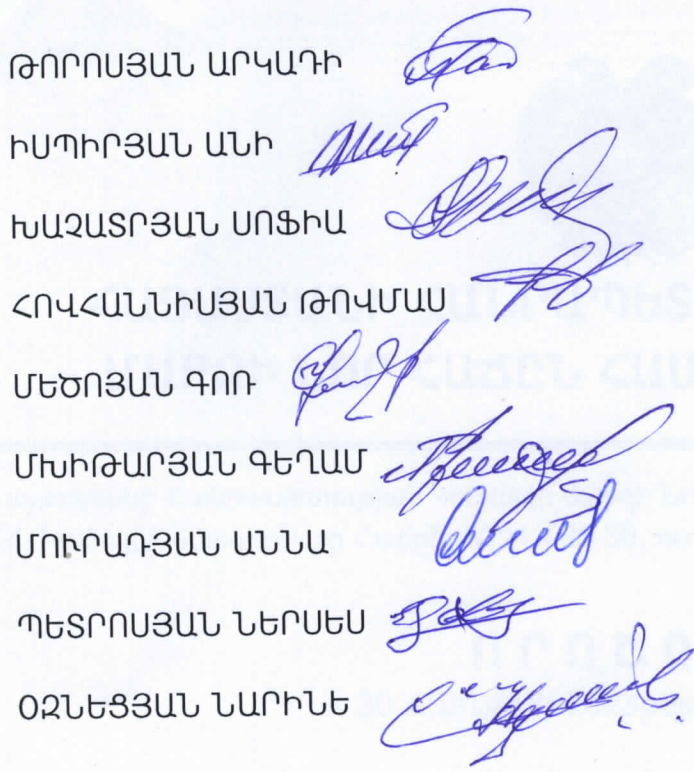 ԹՈՐՈՍՅԱՆ ԱՐԿԱԴԻ
ԻՍՊԻՐՅԱՆ ԱՆԻ
ԽԱՉԱՏՐՅԱՆ ՍՈՖԻԱ
ՀՈՎՀԱՆՆԻՍՅԱՆ ԹՈՎՄԱՍ
ՄԵԾՈՅԱՆ ԳՈՌ
ՄԽԻԹԱՐՅԱՆ ԳԵՂԱՄ
ՄՈՒՐԱԴՅԱՆ ԱՆՆԱ
ՊԵՏՐՈՍՅԱՆ ՆԵՐՍԵՍ
ՕԶՆԵՑՅԱՆ ՆԱՐԻՆԵ